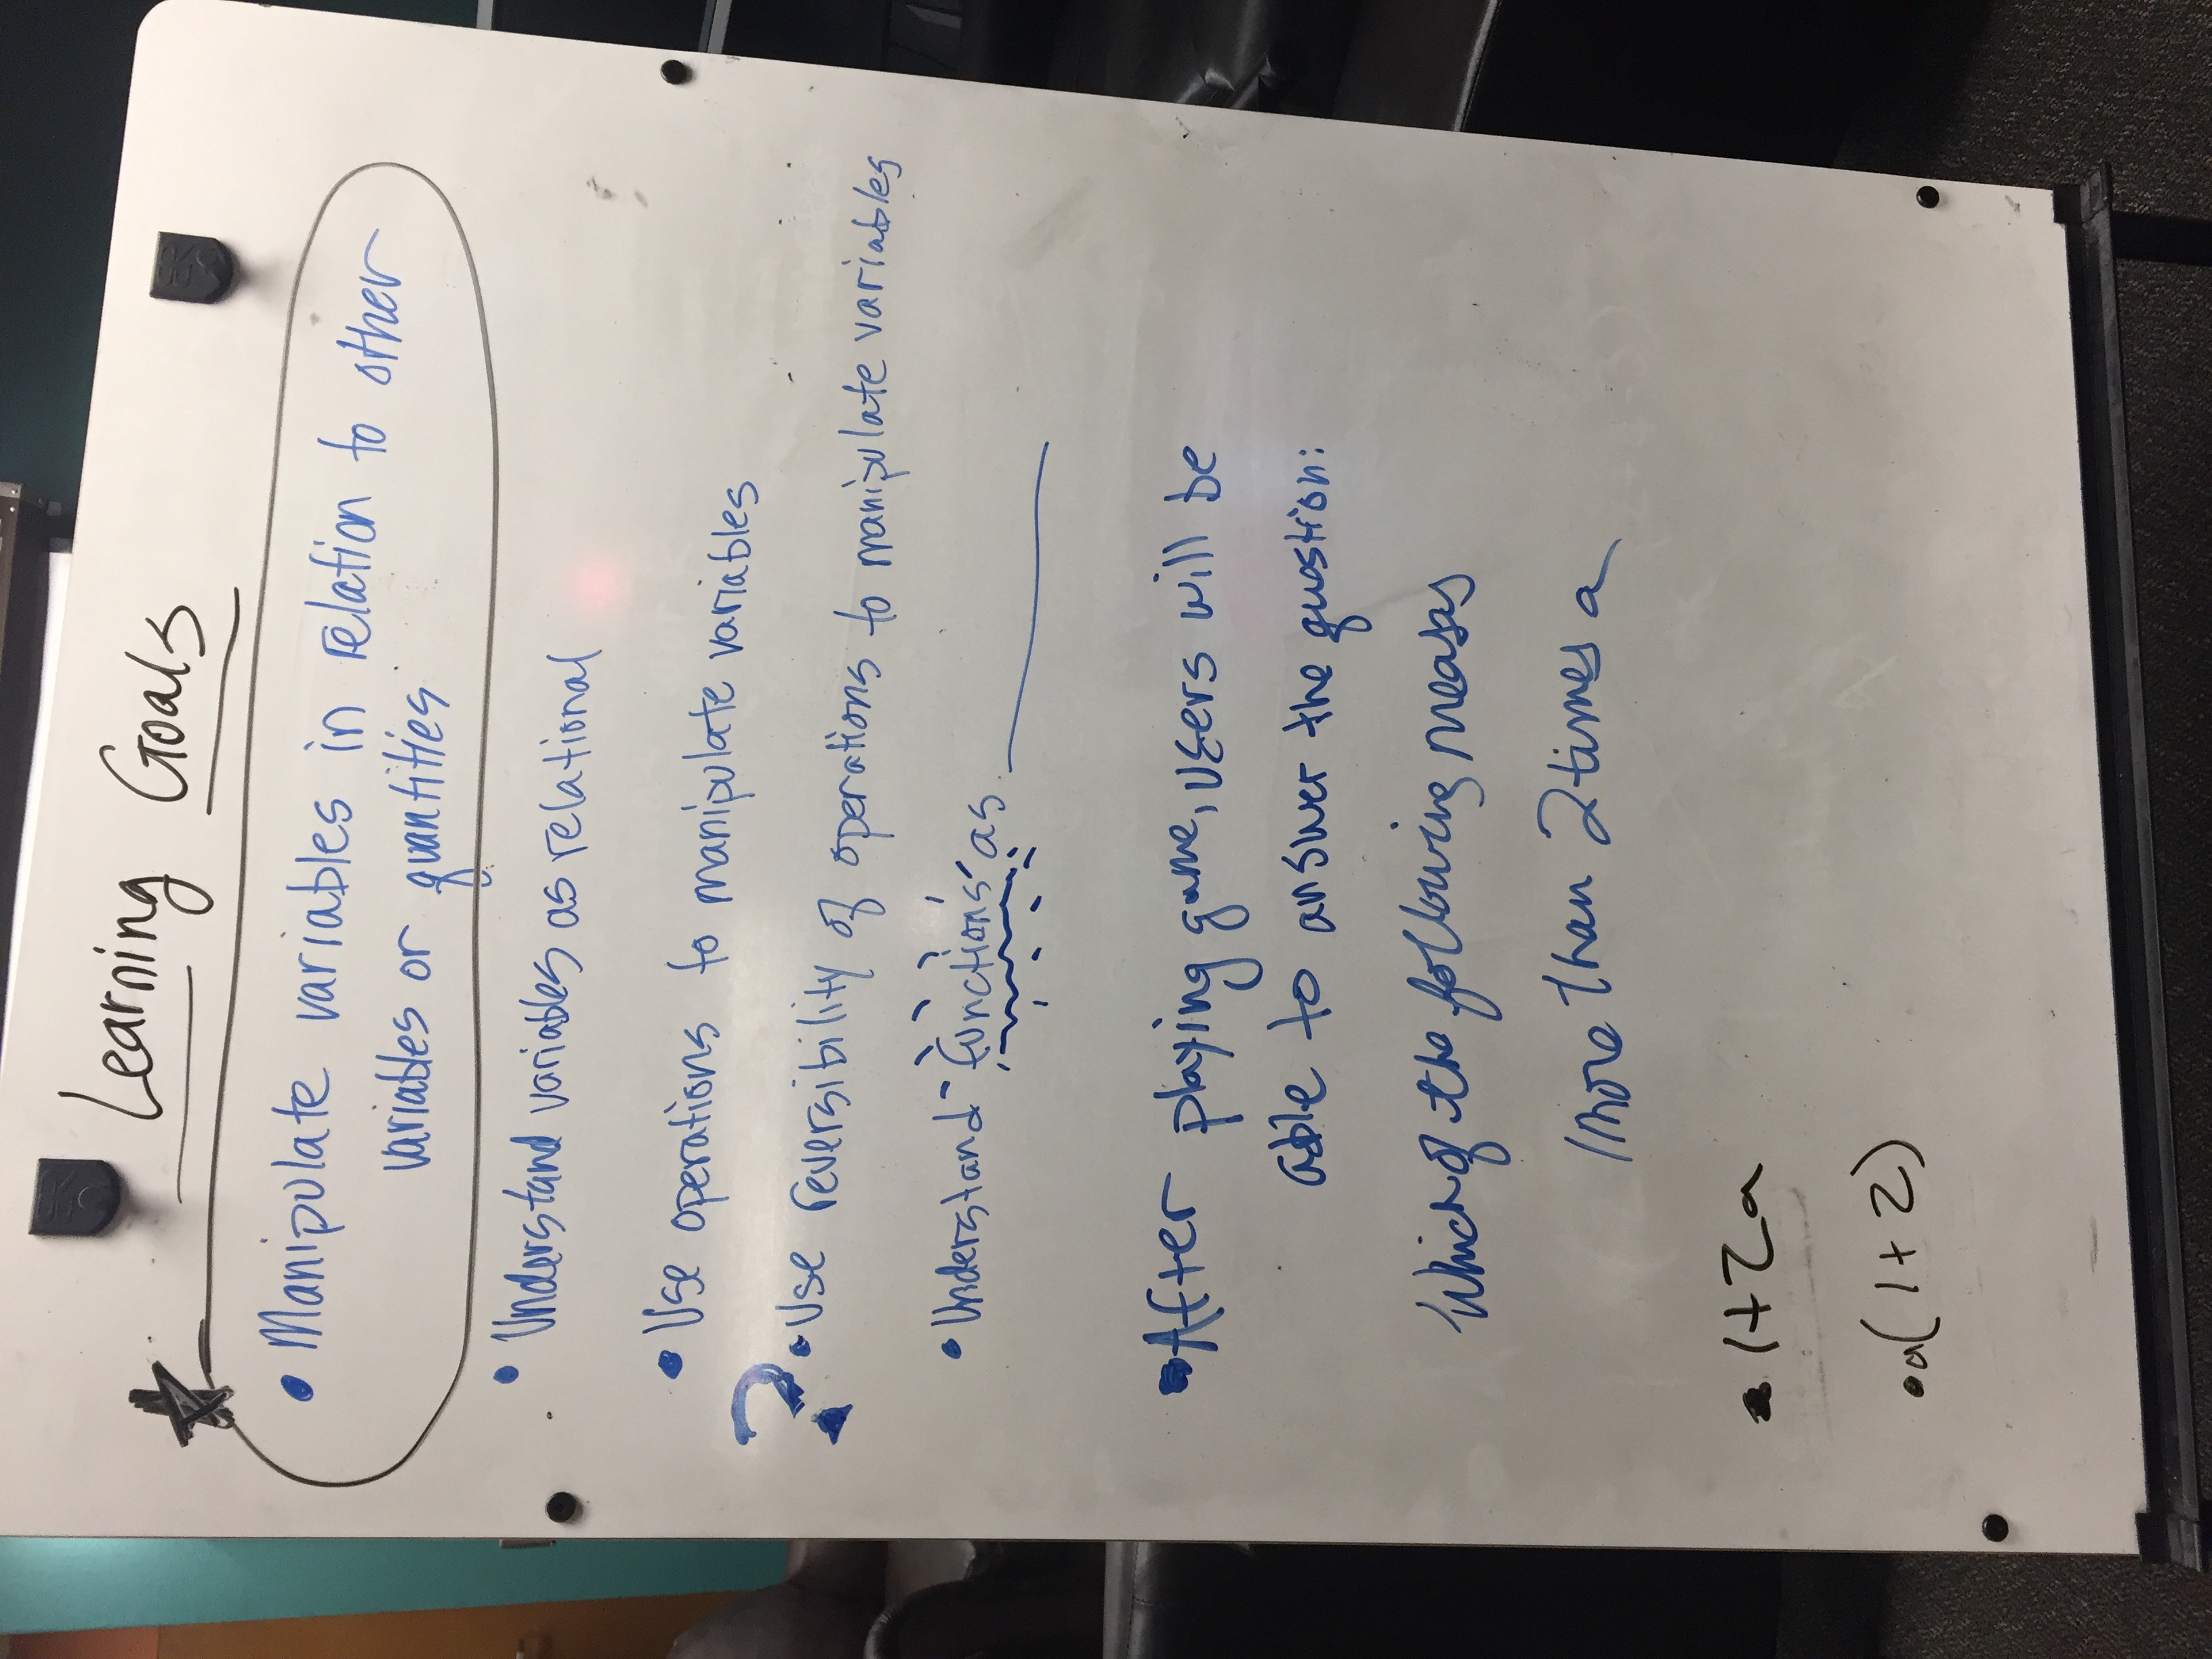 Learning Goals
• Manipulate variables in relation to other
variables or quantities
• Understand variables as relational
• Use operations to manipulate variables
? • Use reversibility of operations to manipulate variables
• Understand functions as ________
• After playing game, users will be
able to answer the question:
Which of the following means
1 more than 2 times a
• 1+2a
• a(1+2)